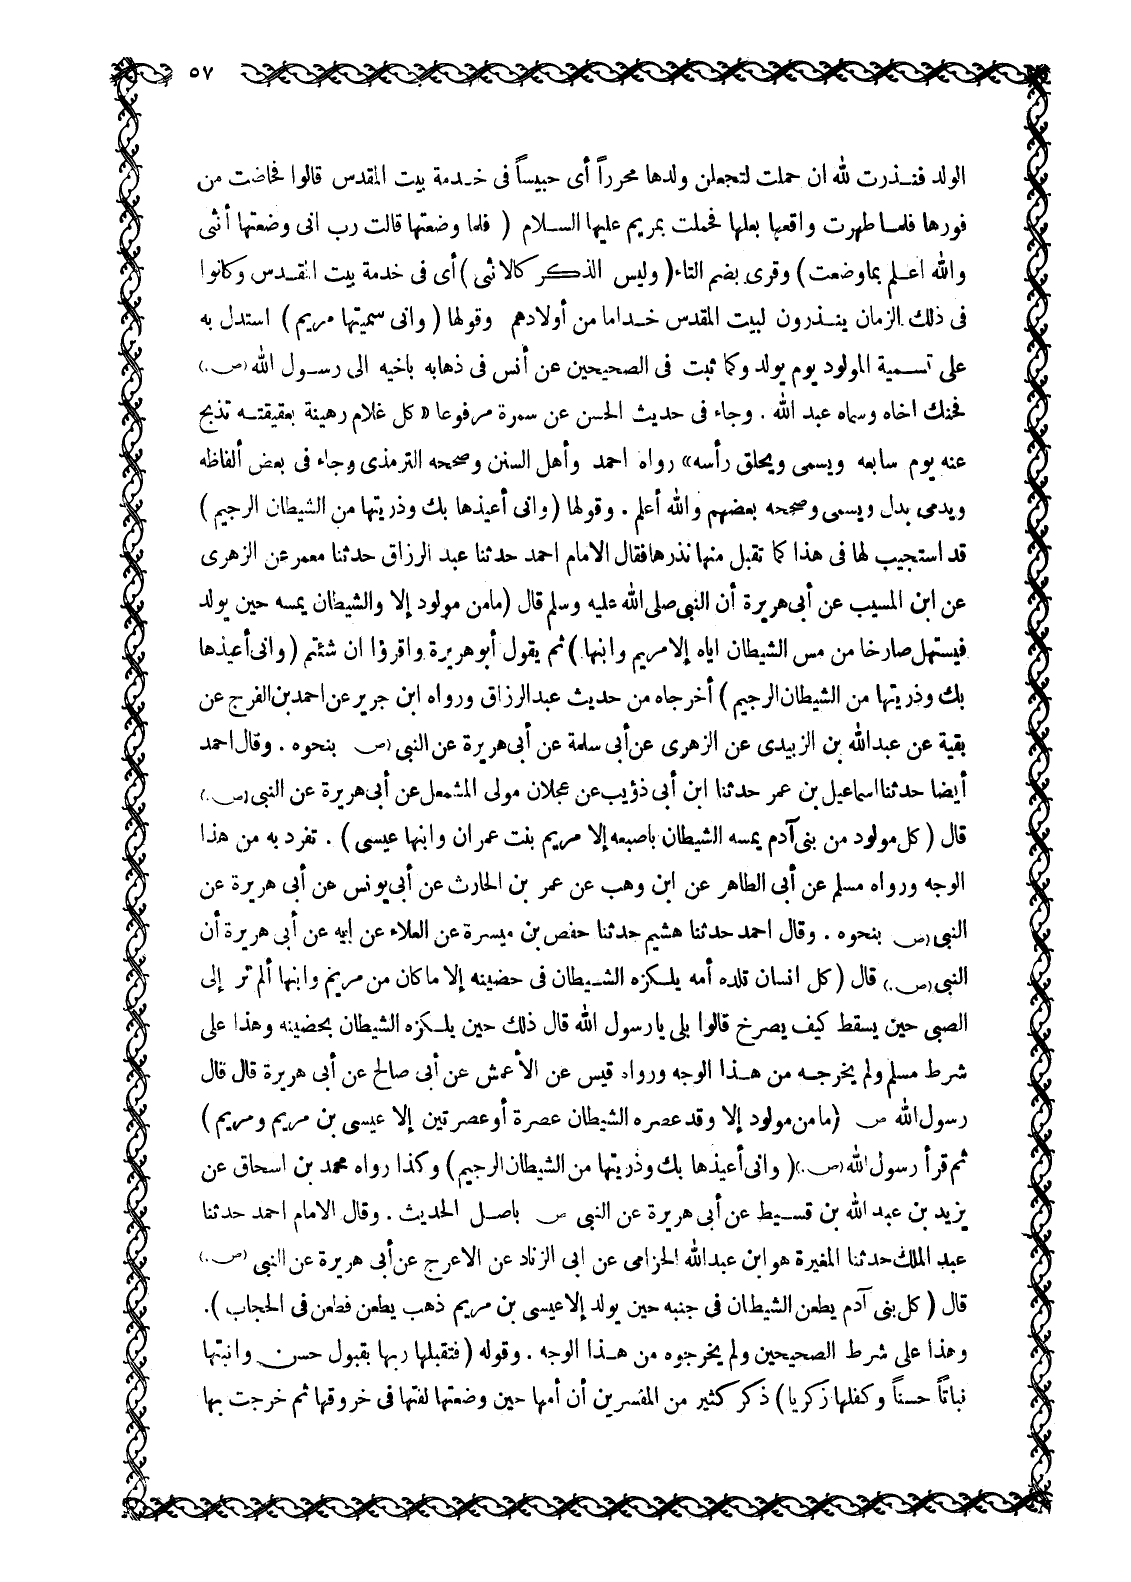 ٥٧
الولد فنـذرت لله ان حملت لتجعلن ولدها محرراً أى حبيساً فى خـدمة بيت المقدس قالوا فحاضت من
فورها فلمـا طهرت واقعها بعلها فحملت بمريم عليها السـلام ( فلما وضعتها قالت رب انى وضعتها أنثى
والله اعـلم بما وضعت ) وقرى بضم التاء ( وليس الذكر كالانثى ) أى فى خدمة بيت المقـدس وكانوا
فى ذلك الزمان ينـذرون لبيت المقدس خـداما من أولادهم وقولها ( وانى سميتها مريم ) استدل به
على تسـمية المولود يوم يولد وكما ثبت فى الصحيحين عن أنس فى ذهابه باخيه الى رسـول الله (ص.)
فحنك اخاه وسماه عبد الله . وجاء فى حديث الحسن عن سمرة مرفوعا « كل غلام رهينة بعقيقتـه تذبح
عنه يوم سابعه ويسمى ويحلق رأسه » رواه احمد وأهل السنن وصححه الترمذى وجاء فى بعض ألفاظه
ويدمى بدل ويسمى وصححه بعضهم والله أعلم . وقولها ( وانى أعيذها بك وذريتها من الشيطان الرجيم )
قد استجيب لها فى هذا كما تقبل منها نذرها فقال الامام احمد حدثنا عبد الرزاق حدثنا معمر عن الزهرى
عن ابن المسيب عن أبى هريرة أن النبى صلى الله عليه وسلم قال ( مامن مولود إلا والشيطان يمسه حين يولد
فيستهل صارخا من مس الشيطان اياه إلا مريم وابنها ) ثم يقول أبو هريرة واقرؤا ان شئتم ( وانى أعيذها
بك وذريتها من الشيطان الرجيم ) أخرجاه من حديث عبد الرزاق ورواه ابن جرير عن احمد بن الفرج عن
بقية عن عبد الله بن الزبيدى عن الزهرى عن أبى سلمة عن أبى هريرة عن النبى (ص بنحوه . وقال احمد
أيضا حدثنا اسماعيل بن عمر حدثنا ابن أبى ذؤيب عن عجلان مولى المشمعل عن أبى هريرة عن النبى (ص.)
قال ( كل مولود من بنى آدم يمسه الشيطان باصبعه إلا مريم بنت عمران وابنها عيسى ) . تفرد به من هذا
الوجه ورواه مسلم عن أبى الطاهر عن ابن وهب عن عمر بن الحارث عن أبى يونس عن أبى هريرة عن
النبى (ص بنحوه . وقال احمد حدثنا هشيم حدثنا حفص بن ميسرة عن العلاء عن ابيه عن أبى هريرة أن
النبى (ص.) قال ( كل انسان تلده أمه يلـكزه الشـيطان فى حضينه إلا ما كان من مريم وابنها ألم تر إلى
الصبى حين يسقط كيف يصرخ قالوا بلى يا رسول الله قال ذلك حين يلـكزه الشيطان بحضينه وهذا على
شرط مسلم ولم يخرجـه من هـذا الوجه ورواه قيس عن الأعمش عن أبى صالح عن أبى هريرة قال قال
رسول الله ص ( ما من مولود إلا وقد عصره الشيطان عصرة أو عصرتين إلا عيسى بن مريم ومريم )
ثم قرأ رسول الله (ص.) ( وانى أعيذها بك وذريتها من الشيطان الرجيم ) وكذا رواه محمد بن اسحاق عن
يزيد بن عبد الله بن قسـيط عن أبى هريرة عن النبى ص باصـل الحديث . وقال الامام احمد حدثنا
عبد الملك حدثنا المغيرة هو ابن عبد الله الحزامى عن ابى الزناد عن الاعرج عن أبى هريرة عن النبى (ص.)
قال ( كل بنى آدم يطعن الشيطان فى جنبه حين يولد إلا عيسى بن مريم ذهب يطعن فطعن فى الحجاب ) .
وهذا على شرط الصحيحين ولم يخرجوه من هـذا الوجه . وقوله ( فتقبلها ربها بقبول حسن وانبتها
نباتاً حسناً وكفلها زكريا ) ذكر كثير من المفسرين أن أمها حين وضعتها لفتها فى خروقها ثم خرجت بها